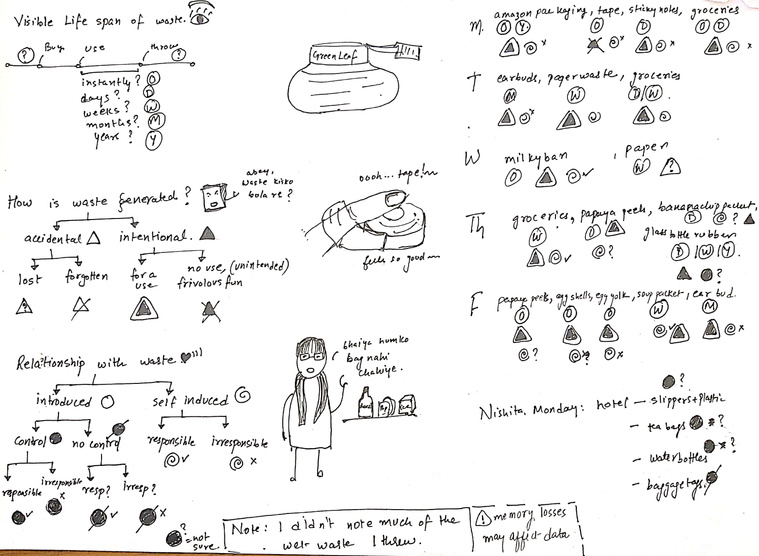 Visible Life span of waste.
? Buy use throw ?
instantly? O
days? D
weeks? W
months? M
years? Y
GreenLeaf
How is waste generated?
abey, waste kisko bola re?
accidental intentional.
lost forgotten for a use no use, (unintended) frivolous fun
?
oooh... tape!
feels so good
Relationship with waste
introduced self induced
control no control responsible irresponsible
✓ x
responsible irresponsible resp? irresp?
✓ x ✓ x
? = not sure.
bhaiya humko bag nahi chahiye.
Note: I didn't note much of the wet waste I threw.
! memory losses may affect data
M. amazon packaging, tape, sticky notes, groceries
O Y O D O D
x x x x
T earbuds, paper waste, groceries
M W D/W
x
W milkybar, paper
O W
✓ ?
Th groceries, papaya peels, banana chip packet,
W O D ?
✓ ?
glass bottle rubber
D/W/Y
?
F papaya peels, egg shells, egg yolk, soup packet, ear bud.
O O O W M
? x? x ✓ x
Nishita, Monday: hotel – slippers + plastic ?
- tea bags x?
- water bottles x?
- baggage tags.